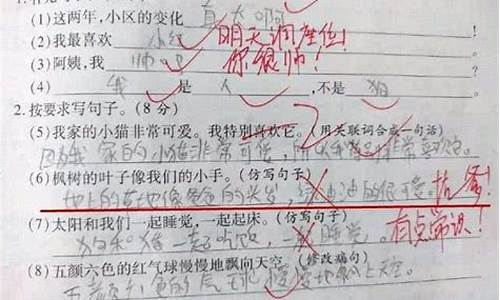 (1)这两年,小区的变化 真大啊
(2)我最喜欢 小红 明天调座位!
(3)阿姨,我 帅吧 你很帅!
(4) 我 是 人 ,不是 狗
2.按要求写句子。(8分)
(5)我家的小猫非常可爱。我特别喜欢它。(用关联词合成一句话)
因为我家的小猫非常可爱,所以我 非常喜欢它。
(6)枫树的叶子像我们的小手。(仿写句子)
地上的草地像爸爸的头发,绿油油的很可爱。 抗争!
(7)太阳和我们一起睡觉,一起起床。(仿写句子)
狗和猪一起吃饭,一起睡觉。 有点常识!
(8)五颜六色的红气球慢慢地飘向天空。(修改病句)
五颜六色的气球慢慢地飘上天空。